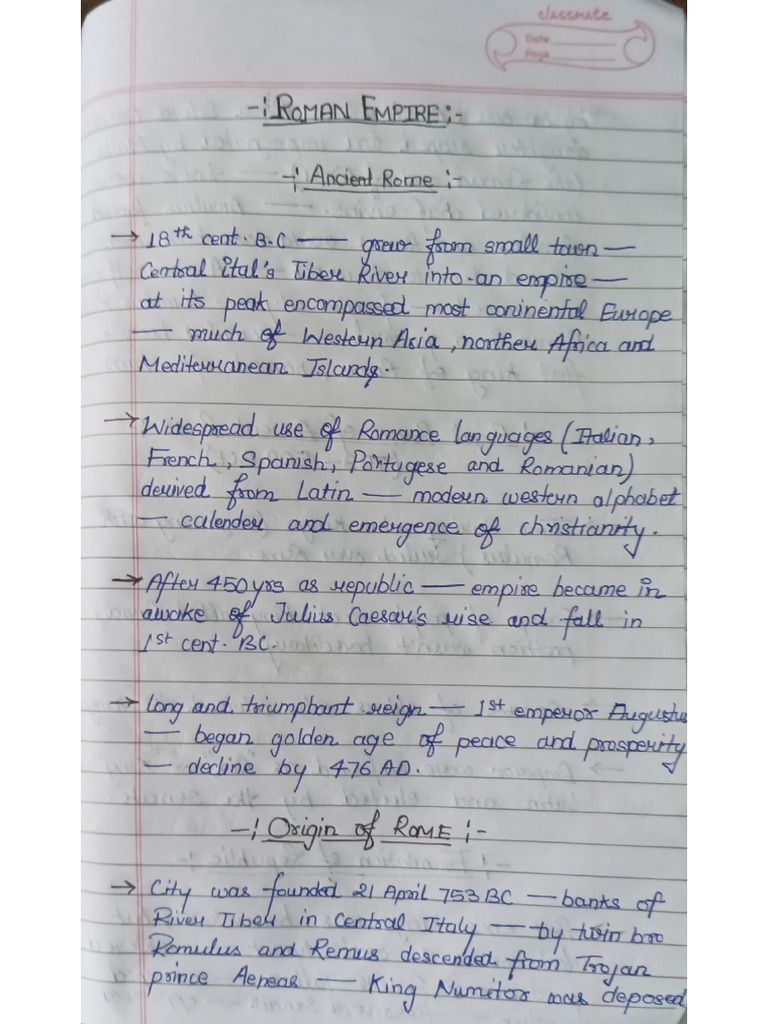 classmate
Date
Page
-:ROMAN EMPIRE:-
-:Ancient Rome:-
→ 18th cent. B.C — grew from small town —
Central Ital's Tiber River into an empire —
at its peak encompassed most coninental Europe
— much of Western Asia, norther Africa and
Mediterranean Islands.
→ Widespread use of Romance languages (Italian,
French, Spanish, Portugese and Romanian)
derived from Latin — modern western alphabet
— calender and emergence of christianity.
→ After 450 yrs as republic — empire became in
awake of Julius Caesar's rise and fall in
1st cent. BC.
→ long and triumphant reign — 1st emperor Augustus
— began golden age of peace and prosperity
— decline by 476 AD.
-:Origin of ROME:-
→ City was founded 21 April 753 BC — banks of
River Tiber in Central Italy — by twin bro
Romulus and Remus descended from Trojan
prince Aeneas — King Numitor was deposed